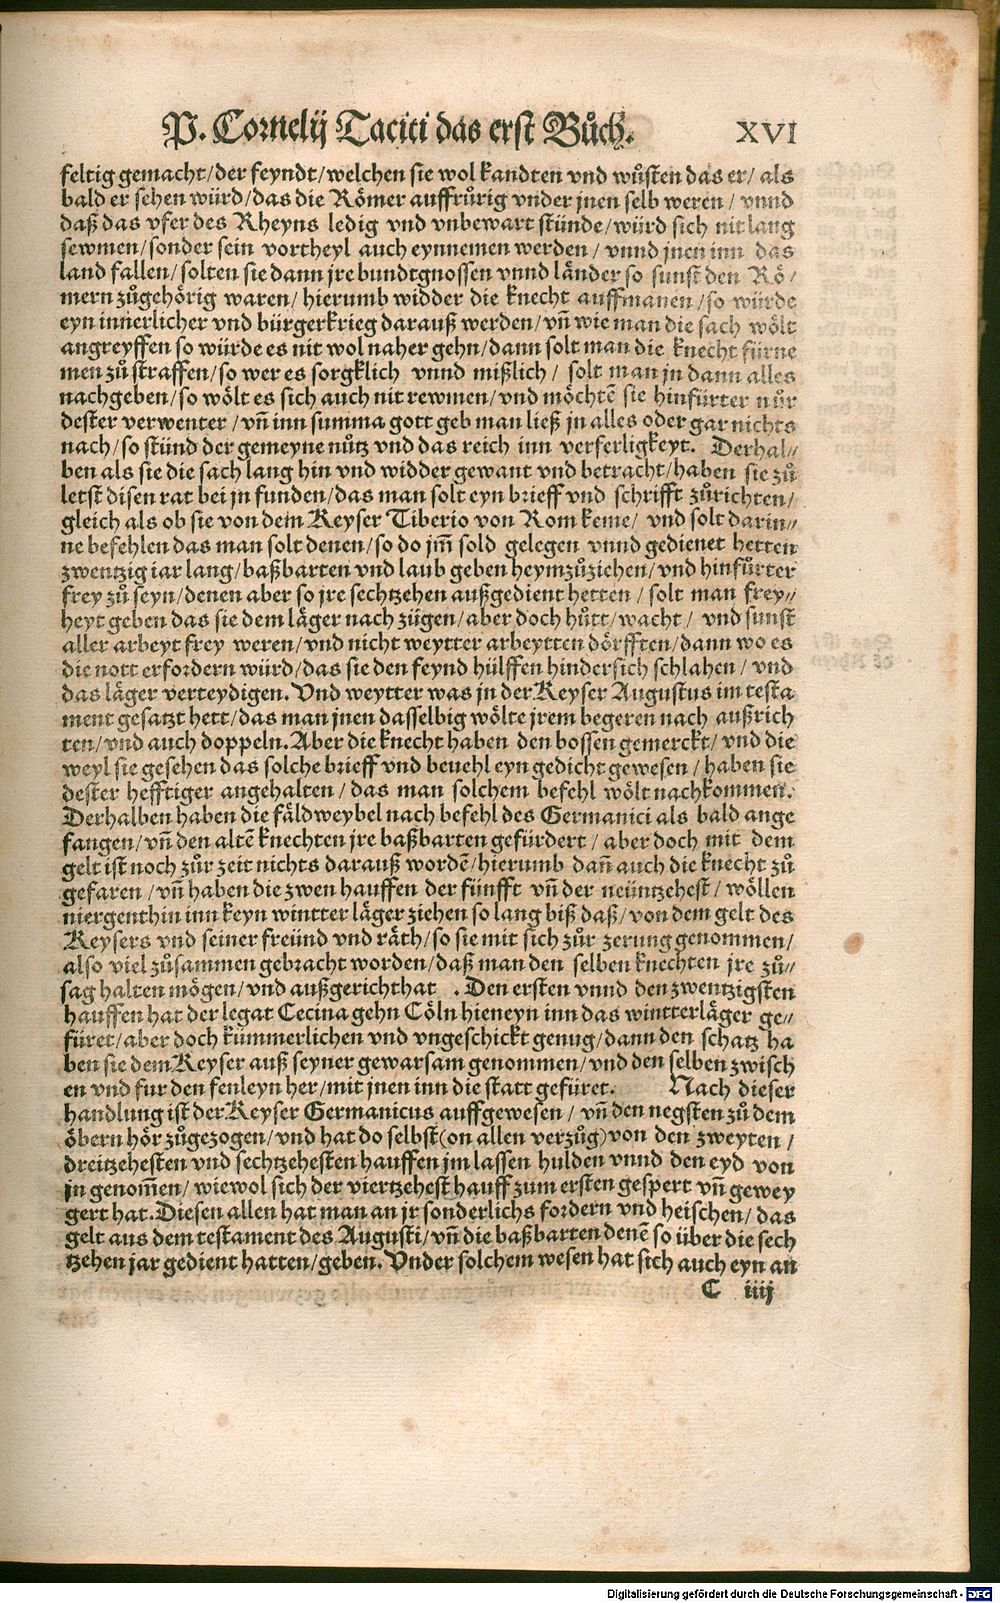 P. Cornelij Taciti das erst Bůch. XVI
feltig gemacht/der feyndt/welchen sie wol kandten vnd wůsten das er/ als
bald er sehen würd/das die Römer auffrůrig vnder jnen selb weren / vnnd
daß das vfer des Rheyns ledig vnd vnbewart stünde/würd sich nit lang
sewmen/sonder sein vortheyl auch eynnemen werden / vnnd jnen inn das
land fallen/ solten sie dann jre bundtgnossen vnnd länder so sunst den Rö/
mern zůgehörig waren/ hierumb widder die knecht auffmanen/so würde
eyn innerlicher vnd bürgerkrieg darauß werden/vñ wie man die sach wölt
angreyffen so würde es nit wol naher gehn/dann solt man die knecht fürne
men zů straffen/so wer es sorgklich vnnd mißlich / solt man jn dann alles
nachgeben/so wölt es sich auch nit rewmen/vnd möchtẽ sie hinfürter nůr
dester verwenter /vñ inn summa gott geb man ließ jn alles oder gar nichts
nach/so stünd der gemeyne nůtz vnd das reich inn verferligkeyt. Derhal//
ben als sie die sach lang hin vnd widder gewant vnd betracht/haben sie zů
letst disen rat bei jn funden/das man solt eyn brieff vnd schrifft zůrichten/
gleich als ob sie von dem Keyser Tiberio von Rom keme/ vnd solt darin//
ne befehlen das man solt denen/so do jm̃ sold gelegen vnnd gedienet hetten
zwentzig iar lang/baßbarten vnd laub geben heymzůziehen/vnd hinfůrter
frey zů seyn/denen aber so jre sechtzehen außgedient hetten / solt man frey//
heyt geben das sie dem läger nach zügen/aber doch hůtt/wacht/ vnd sunst
aller arbeyt frey weren/vnd nicht weytter arbeytten dörfften/dann wo es
die nott erfordern würd/das sie den feynd hülffen hindersich schlahen / vnd
das läger verteydigen. Vnd weytter was jn der Keyser Augustus im testa
ment gesatzt hett/das man jnen dasselbig wölte jrem begeren nach außrich
ten/vnd auch doppeln. Aber die knecht haben den bossen gemerckt/vnd die
weyl sie gesehen das solche brieff vnd beuehl eyn gedicht gewesen / haben sie
dester hefftiger angehalten / das man solchem befehl wölt nachkommen.
Derhalben haben die fäldweybel nach befehl des Germanici als bald ange
fangen/vñ den altẽ knechten jre baßbarten gefürdert / aber doch mit dem
gelt ist noch zůr zeit nichts darauß wordẽ/hierumb dañ auch die knecht zů
gefaren /vñ haben die zwen hauffen der fünfft vñ der neüntzehest/ wöllen
niergenthin inn keyn wintter läger ziehen so lang biß daß/von dem gelt des
Keysers vnd seiner freünd vnd räth/so sie mit sich zůr zerung genommen/
also viel zůsammen gebracht worden/daß man den selben knechten jre zů//
sag halten mögen/vnd außgerichthat . Den ersten vnnd den zwentzigsten
hauffen hat der legat Cecina gehn Cöln hieneyn inn das wintterläger ge//
füret/aber doch kümmerlichen vnd vngeschickt genug/dann den schatz ha
ben sie dem Keyser auß seyner gewarsam genommen/vnd den selben zwisch
en vnd fur den fenleyn her/mit jnen inn die statt gefüret. Nach dieser
handlung ist der Keyser Germanicus auffgewesen / vñ den negsten zů dem
öbern hör zůgezogen/vnd hat do selbst (on allen verzůg) von den zweyten /
dreitzehesten vnd sechtzehesten hauffen jm lassen hulden vnnd den eyd von
jn genom̃en/ wiewol sich der viertzehest hauff zum ersten gespert vñ gewey
gert hat. Diesen allen hat man an jr sonderlichs fordern vnd heischen/ das
gelt aus dem testament des Augusti/vñ die baßbarten denẽ so über die sech
tzehen jar gedient hatten/geben. Vnder solchem wesen hat sich auch eyn an
C iiij
Digitalisierung gefördert durch die Deutsche Forschungsgemeinschaft - DFG